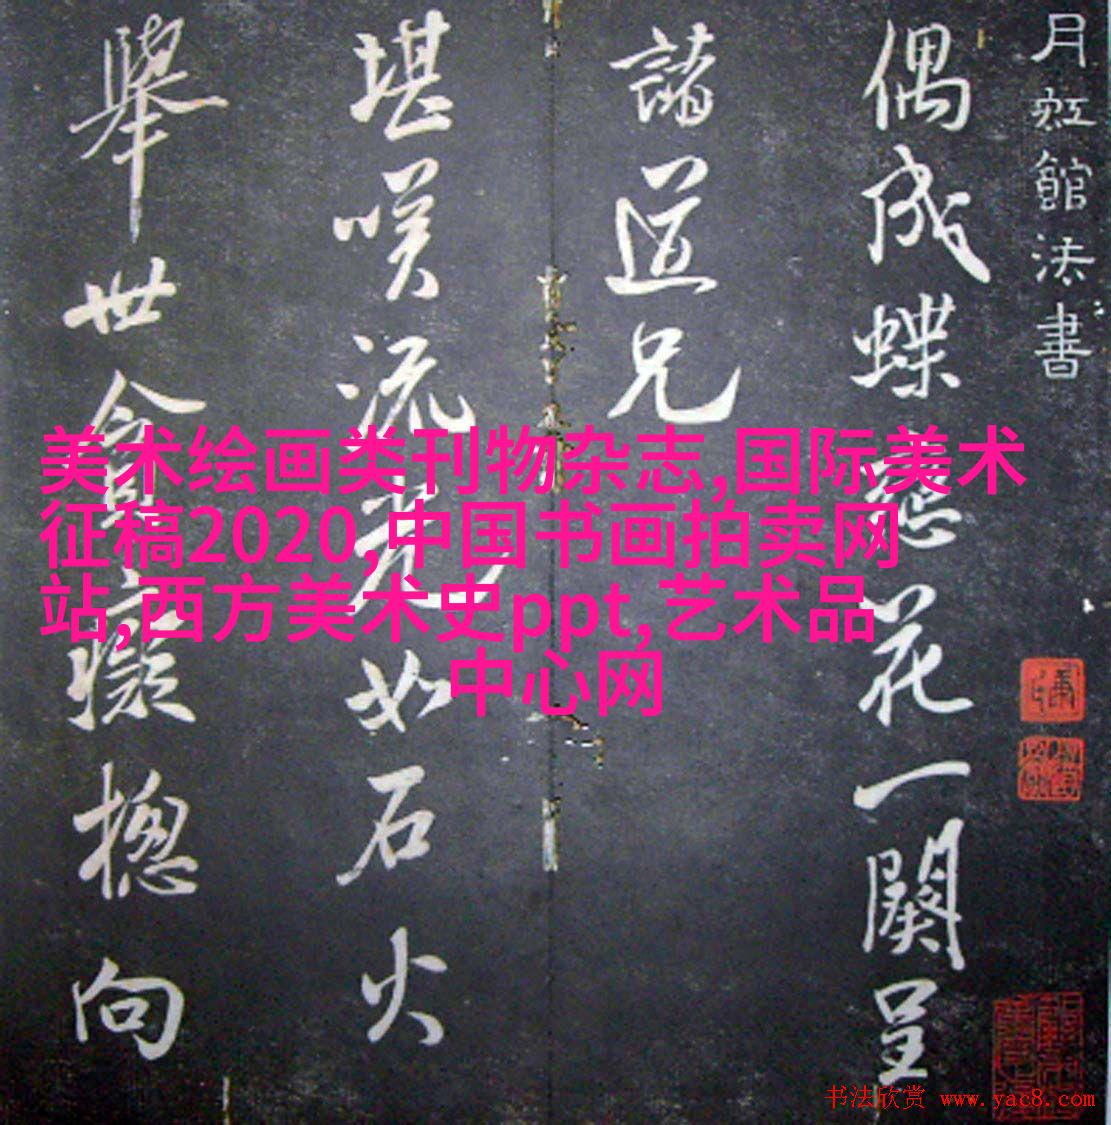 月虹館法書
偶成蝶戀花一闋呈
諸道兄
堪咲流光如石火
舉世貪癡摠向
美术绘画类刊物杂志,国际美术
征稿2020,中国书画拍卖网
站,西方美术史ppt,艺术品
中心网
书法欣赏 www.yac8.com